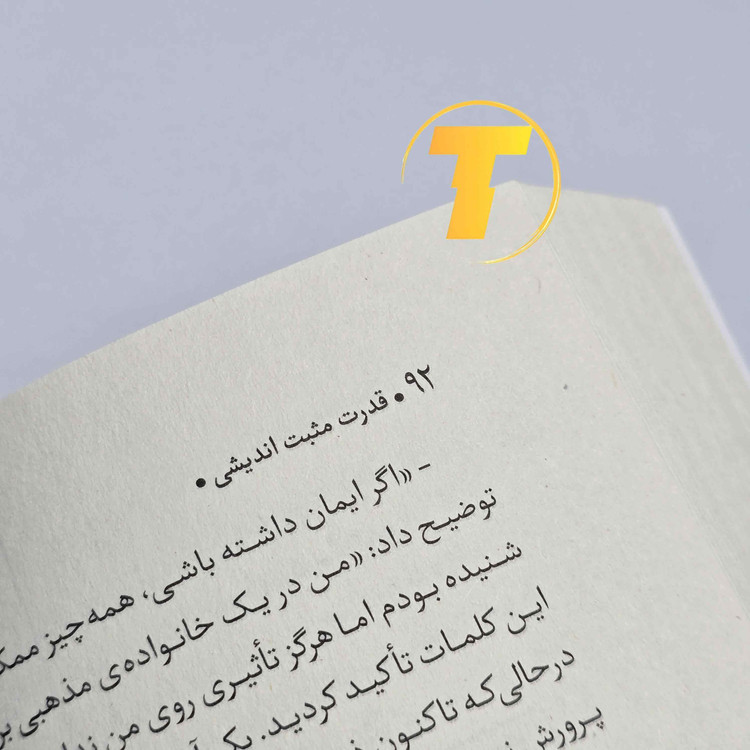 T
۹۲ • قدرت مثبت اندیشی •
- «اگر ایمان داشته باشی، همه‌چیز
توضیح داد: «من در یک خانواده‌ی مذهبی
شنیده بودم اما هرگز تأثیری روی من
این کلمات تأکید کردید. یک
درحالی‌که تاکنون
پرورش